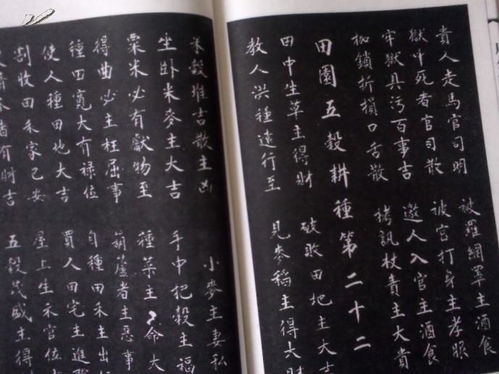 貴人走馬官司明 被羅網罩主酒食
獄中死者官司散 被官打身主孝服
牢獄具污百事吉 邀人入官主酒食
枷鎖折損口舌散 拷訊杖責主大貴
田園五穀耕種第二十二
田中生草主得財 破敗田地主大吉
教人洪種遠行至 見麥稻主得大財
米穀堆吉散主凶 小麥主妻私
坐卧米麥主大吉 手中把穀主福
粟米必有獻物至 種菜主命大
得曲必主枉屈事 葫蘆者主惡事
種田寬大有祿位 自種田禾主出
使人種田也大吉 買人田宅主進
割收田禾家已安 屋上生禾官位
有財吉 五穀茂盛主得